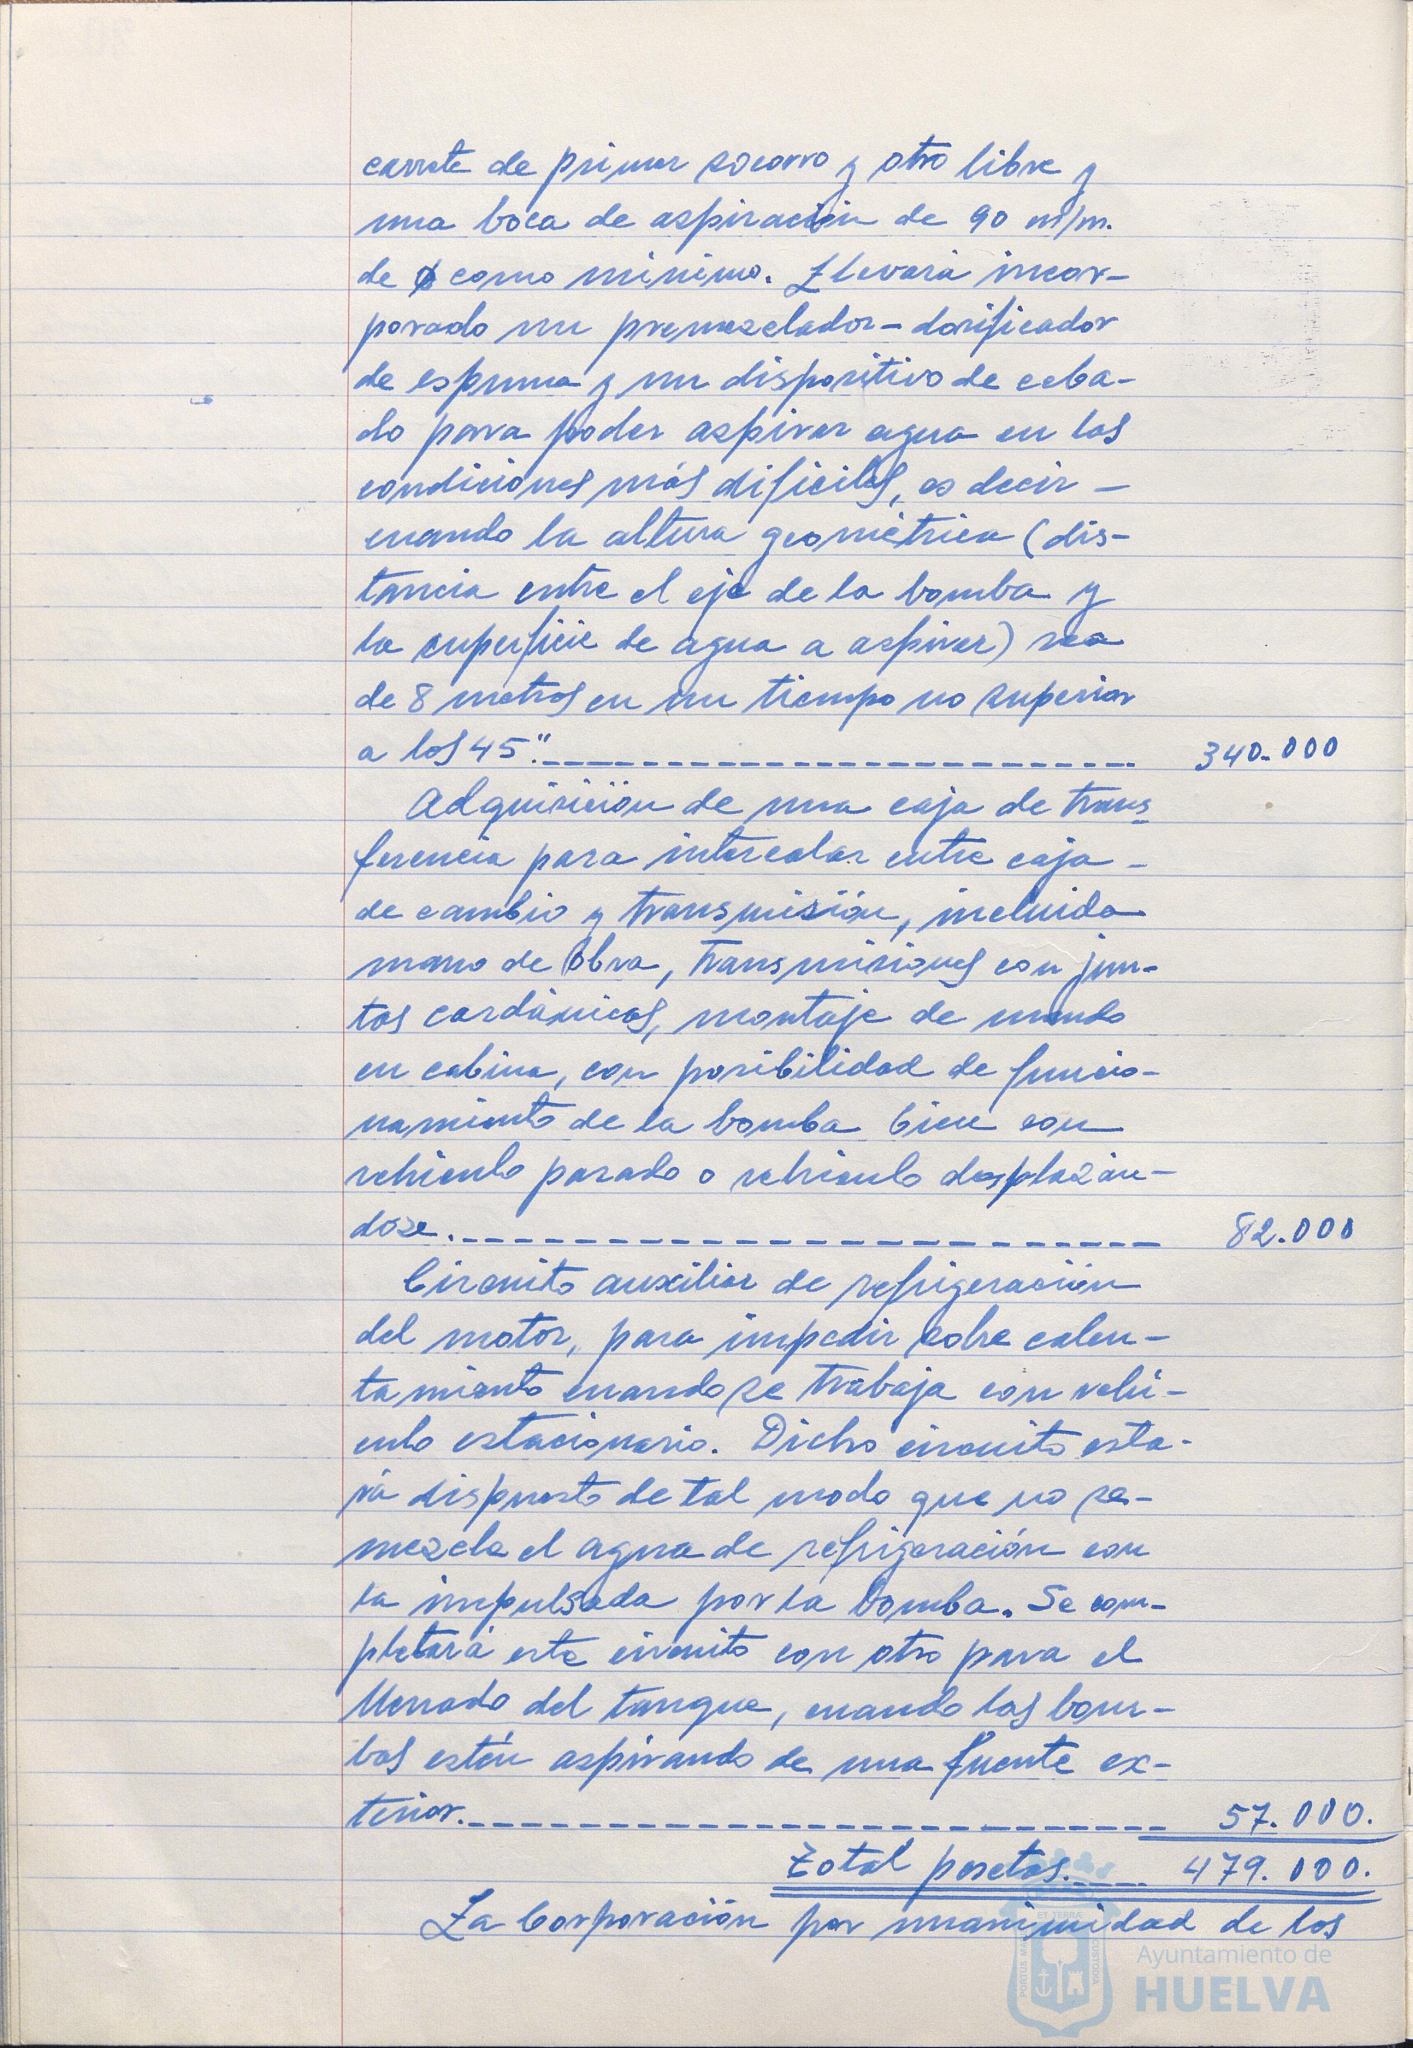 carrete de primer socorro y otro libre y
una boca de aspiración de 90 m/m.
de ø como minimo. Llevará incor-
porado un premezclador-dosificador
de espuma y un dispositivo de ceba-
do para poder aspirar agua en las
condiciones más dificiles, es decir -
cuando la altura geométrica (dis-
tancia entre el eje de la bomba y
la superficie de agua a aspirar) sea
de 8 metros en un tiempo no superior
a los 45". 340.000
Adquisición de una caja de trans-
ferencia para intercalar entre caja -
de cambio y transmisión, incluida
mano de obra, transmisiones con jun-
tas cardánicas, montaje de mando
en cabina, con posibilidad de funcio-
namiento de la bomba bien con
vehiculo parado o vehiculo desplazán-
dose. 82.000
Circuito auxiliar de refrigeración
del motor, para impedir sobre calen-
tamiento cuando se trabaja con vehí-
culo estacionario. Dicho circuito esta-
rá dispuesto de tal modo que no se-
mezcle el agua de refrigeración con
la impulsada por la bomba. Se com-
pletará este circuito con otro para el
llenado del tanque, cuando las bom-
bas estén aspirando de una fuente ex-
terior. 57.000.
Total pesetas. 479.000.
La Corporación por unanimidad de los
Ayuntamiento de
HUELVA